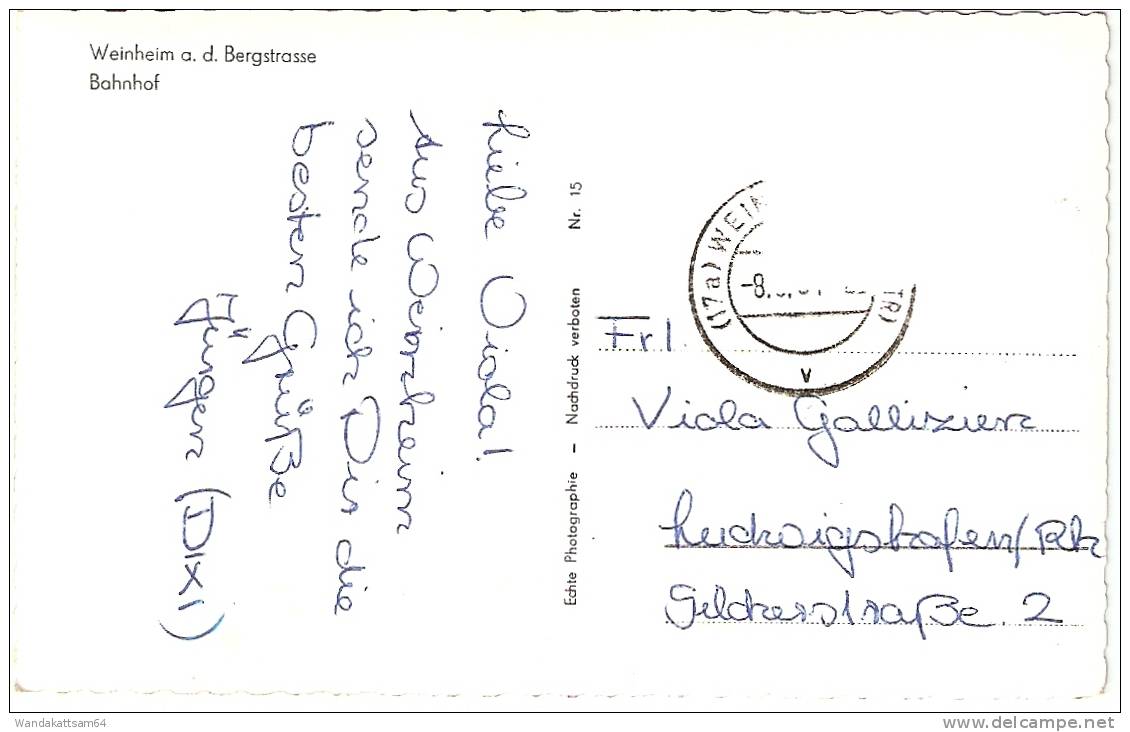 Weinheim a. d. Bergstrasse
Bahnhof
Liebe Viola!
Aus Weinheim
sende ich Dir die
besten Grüße
Jürgen (DIXI)
Echte Photographie – Nachdruck verboten Nr. 15
(17a) WEIN TR)
-8.
v
Frl.
Viola Gallizien
Ludwigshafen/Rh
straße 2
Wandakattsam64
www.delcampe.net